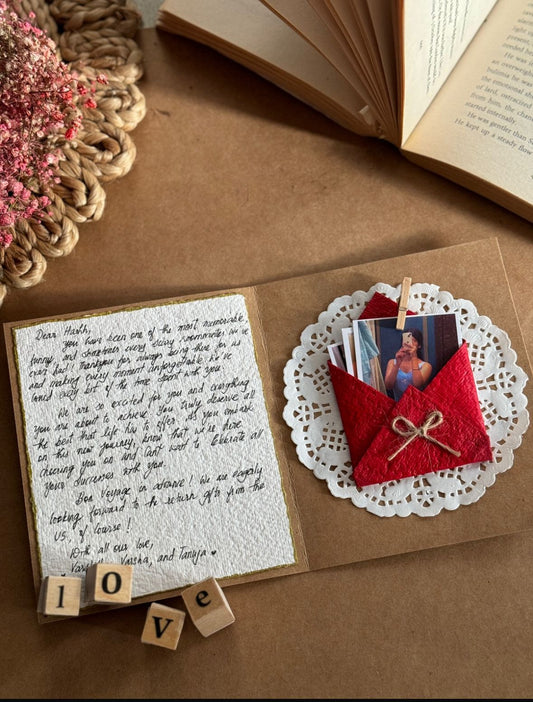 present,
needed he
He was in
an overweight sha
bulimia he was
the emotional
of lard, ostracized
from him, the chan
started internally.
He was gentler than
He kept up a steady flow
Dear Harsh,
You have been one of the most memorable,
funny, and sometimes every crazy roommates we've
ever had! Thankyou for always being there for us
and making every moment unforgettable. We've
loved every bit of the time spent with you.
We are so excited for you and everything
you are about to achieve. You truly deserve all
the best that life has to offer. As you embark
on this new journey, know that we're here
cheering you on and can't wait to celebrate all
your successes with you.
Bon Voyage in advance! We are eagerly
looking forward to the return gifts from the
US, of course!
With all our love,
Varsha, and Tanuja
love